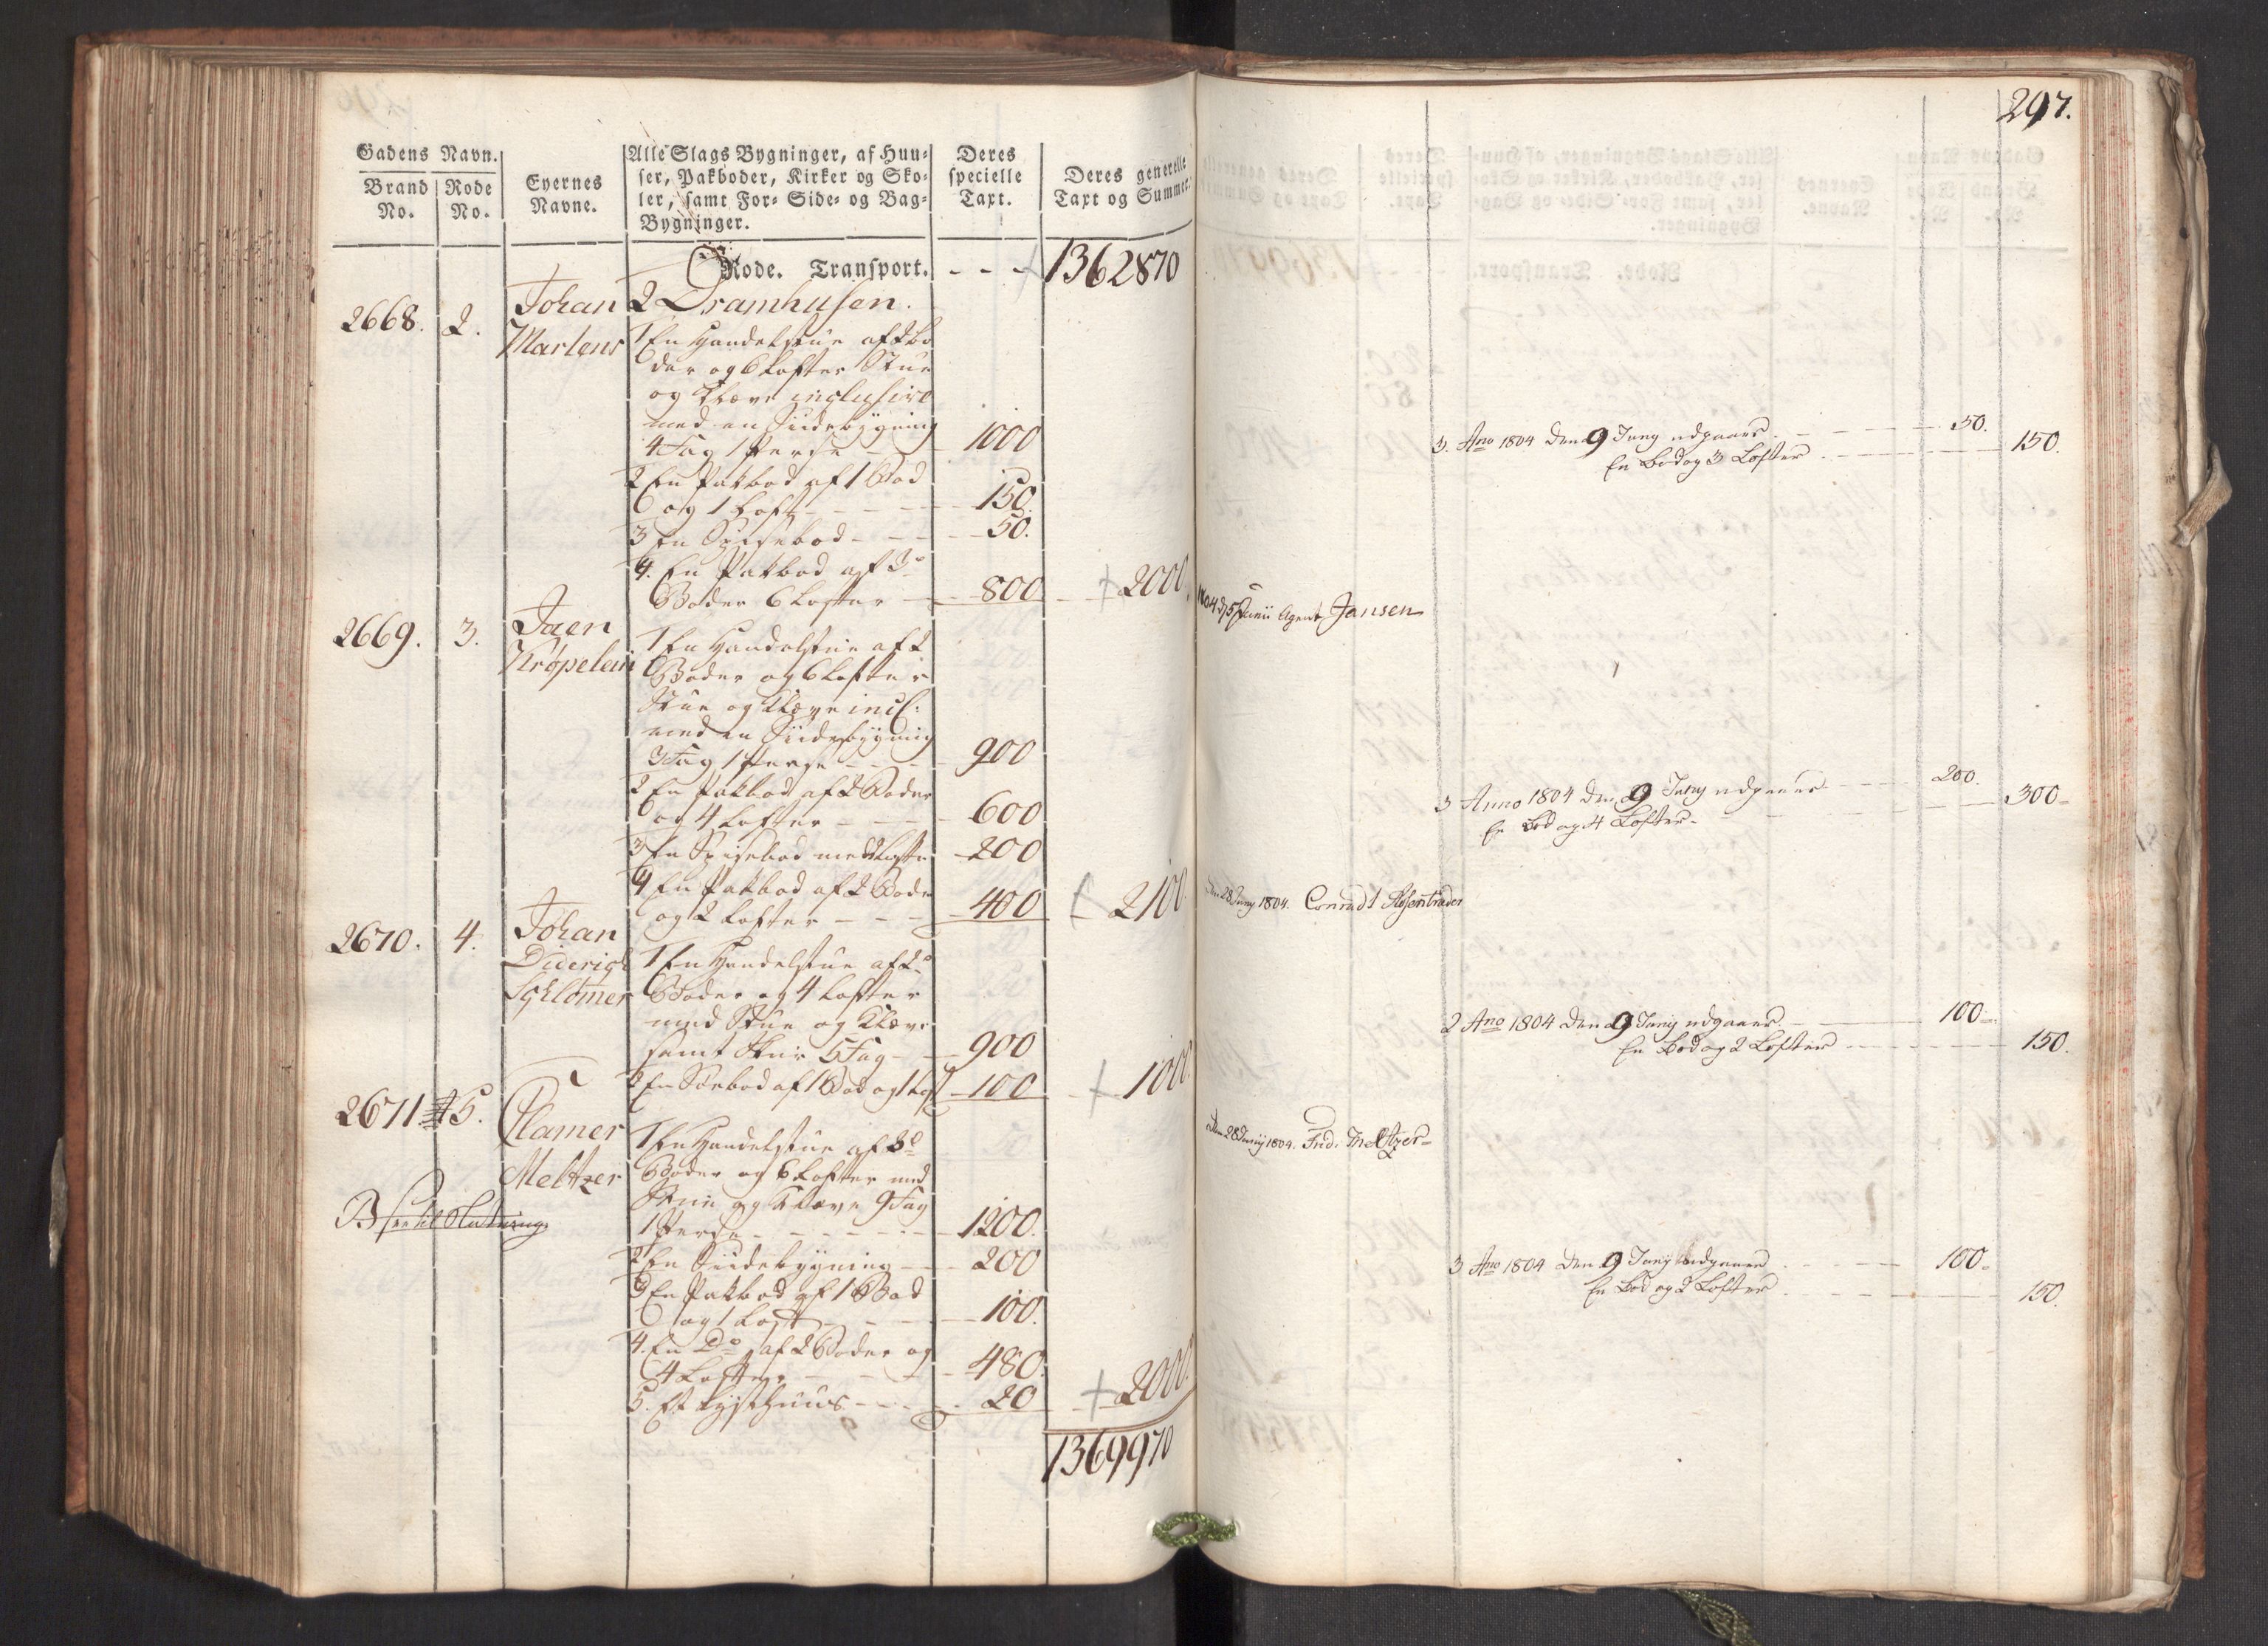 Gadens Navn.
Brand No.
Rode No.
Eyernes Navne.
Alle Slags Bygninger, af Huu-
ser, Pakboder, Kirker og Sko-
ler, samt For- Side- og Bag-
Bygninger.
Deres specielle Taxt.
Deres generelle Taxt og Summer.
Rode. Transport. - - - 1362870
2 Dramhusen.
2668. 2. Johan Martens
1 En Handelstue af 2 bo
der og 6 Lofter Stue
og Kleve inclusive
med en Siidebygning
4 Fag 1 Perse - - 1000
2 En Pakbod af 1 Bod
og 1 Loft - - - - 150.
3 En Spisebod - - - 50.
4. En Pakbod af 3de
Boder 6 Lofter - 800 - + 2000
2669. 3. Jaen Krøpelein
1 En Handelstue af 2
Boder og 6 Lofter
Stue og Kleve incl:
med en Siidebygning
3 Fag 1 Perse - - - - 900
2 En Pakbod af 2 Boder
og 4 Lofter - - - 600
3 En Spisebod med Lofte 200
4 En Pakbod af 2 Boder
og 2 Lofter - - - 400 + 2100
2670. 4. Johan Diderich Schlømer
1 En Handelstue af 2de
Boder og 4 Lofter
med Stue og Kleve
samt Skur 5 Fag - - 900
2 En Søebod af 1 Bod og 1 Loft 100 + 1000
2671 5. Clamer Meltzer
1 En Handelstue af 3de
Boder og 6 Lofter med
Stue og Kleve 9 Fag
1 Perse - - - - - - 1200.
2 En Siidebygning - - 200
3 En Pakbod af 1 Bod
og 1 Loft - - - - 100.
4. En Do af 2 Boder og
4 Lofter - - - - 480.
5. Et Lysthuus - - - - 20 + 2000.
1369970
297.
3. Ano 1804 den 9 Juny udgaaer - - - 50.
En Bod og 3 Lofter - - - 150.
1804 d 5 Junii Agent Jansen
3 Anno 1804 den 9 Juny udgaaer - - - 200.
En Bod og 4 Lofter - - - 300
Den 28 Juny 1804. Conradt Rosentræder
2 Ano 1804 den 9 Juny udgaaer - - - 100
En Bod og 2 Lofter - - - 150.
Den 28 Juny 1804. Frid: Meltzer
3 Ano 1804 den 9 Juny udgaaer - - - 100
En Bod og 2 Lofter - - - 150.